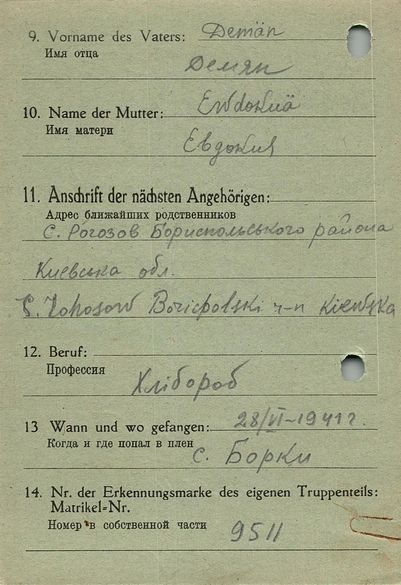 9. Vorname des Vaters: Demän
Имя отца
Демян
10. Name der Mutter: Ewdokiä
Имя матери
Евдокия
11. Anschrift der nächsten Angehörigen:
Адрес ближайших родственников
с. Рогозов Бориспольського района
Киевська обл.
S. Rohosow Borispolski r-n Kiewska
12. Beruf:
Профессия
Хлібороб
13 Wann und wo gefangen: 28/VI-1941 г.
Когда и где попал в плен
с. Борки
14. Nr. der Erkennungsmarke des eigenen Truppenteils:
Matrikel-Nr.
Номер в собственной части
9511